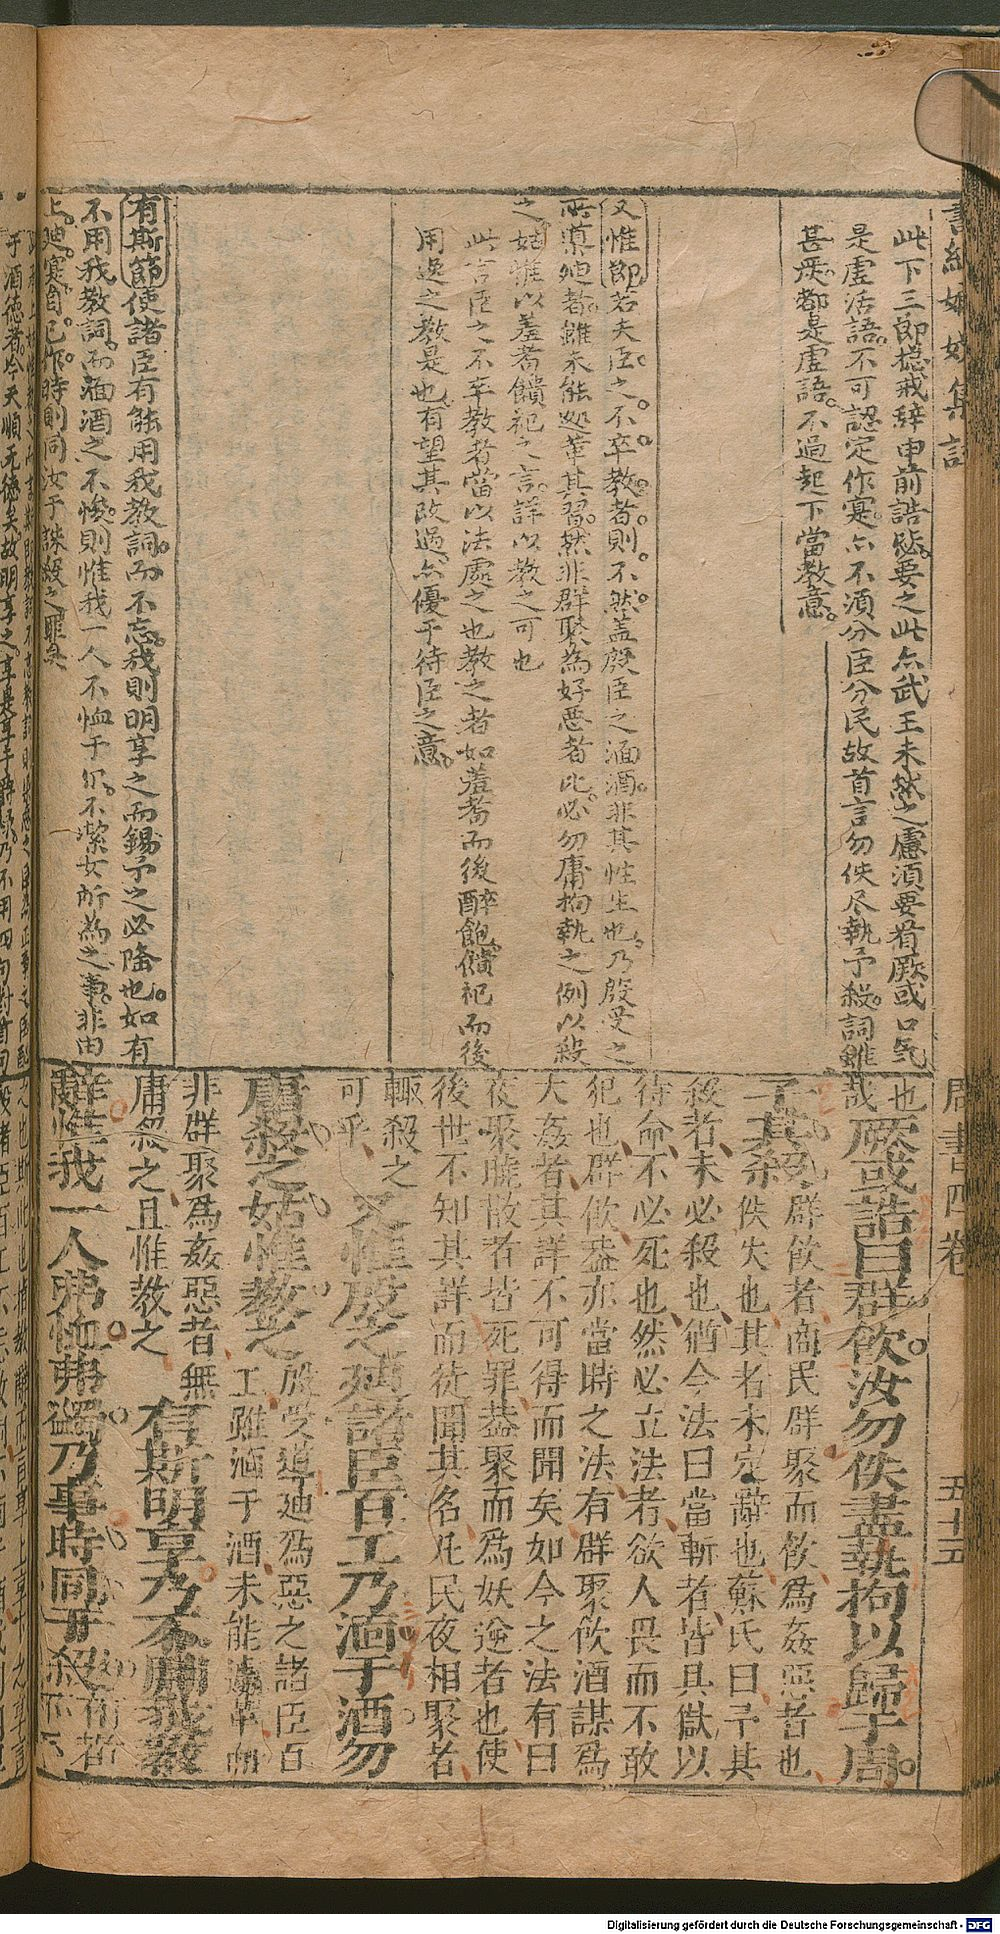 此下三節緫戒辝申前誥毖要之此亦武王未然之慮湏要看厥或口気
是虚活語不可認定作寔亦不湏分臣分民故首言勿佚尽執予殺詞雖
甚戾都是虚語不過起下當教意
又惟節若夫臣之不卒教者則不然盖殷臣之湎酒非其性生也乃殷受之
所導廸者雖未能処革其習然非群聚為好惡者比必勿庸拘執之例以殺
之姑惟以羞耇饋祀之言詳以教之可也
此言臣之不卒教者當以法處之也教之者如羞耇而後醉飽饋祀而後
用逸之教是也有望其改過亦優乎待臣之意
有斯節使諸臣有能用我教詞而不忘我則明享之而錫予之必隆也如有
不用我教詞而湎酒之不悛則惟我一人不恤于尔不潔女所為之事非由
上廸寔自已作時則同汝于誅殺之罪矣
周書四卷
五十五
也厥或誥曰群飲汝勿佚盡執拘以歸于周
哉
予其殺群飲者商民群聚而飲爲姦惡者也
佚失也其者未定辭也蘇氏曰予其
殺者未必殺也猶今法曰當斬者皆具獄以
待命不必死也然必立法者欲人畏而不敢
犯也群飲盖亦當時之法有群聚飲酒謀爲
大姦者其詳不可得而聞矣如今之法有曰
夜聚曉散者皆死罪盖聚而爲妖逆者也使
後世不知其詳而徒聞其名凡民夜相聚者
輒殺之
可乎
又惟殷之廸諸臣百工乃湎于酒勿
庸殺之姑惟教之
殷受導廸爲惡之諸臣百
工雖湎于酒未能遽革而
非群聚爲姦惡者無
庸殺之且惟教之
有斯明享乃不用我教
辭惟我一人弗恤弗蠲乃事時同于殺
Digitalisierung gefördert durch die Deutsche Forschungsgemeinschaft - DFG